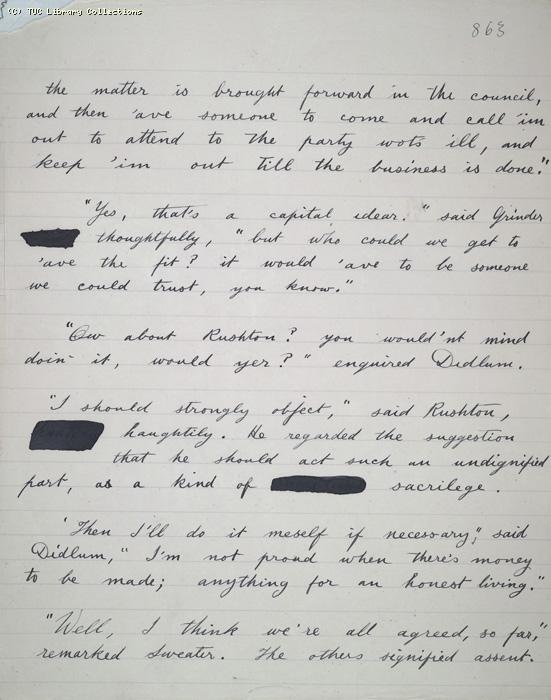 (C) TUC Library Collections
863
the matter is brought forward in the council,
and then 'ave someone to come and call 'im
out to attend to the party wots ill, and
keep 'im out till the business is done."
"Yes, that's a capital idear." said Grinder
thoughtfully, "but who could we get to
'ave the fit? it would 'ave to be someone
we could trust, you know."
"Ow about Rushton? you would'nt mind
doin' it, would yer?" enquired Didlum.
"I should strongly object," said Rushton,
haughtily. He regarded the suggestion
that he should act such an undignified
part, as a kind of sacrilege.
"Then I'll do it meself if necessary," said
Didlum, "I'm not proud when there's money
to be made; anything for an honest living."
"Well, I think we're all agreed, so far,"
remarked Sweater. The others signified assent.